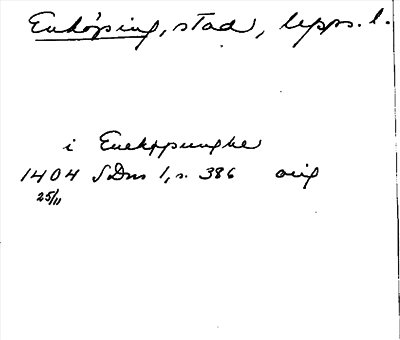 Enköping, stad, Upps. l.
i Enekøpunghe
1404 SDns 1, s. 386 orig
25/11